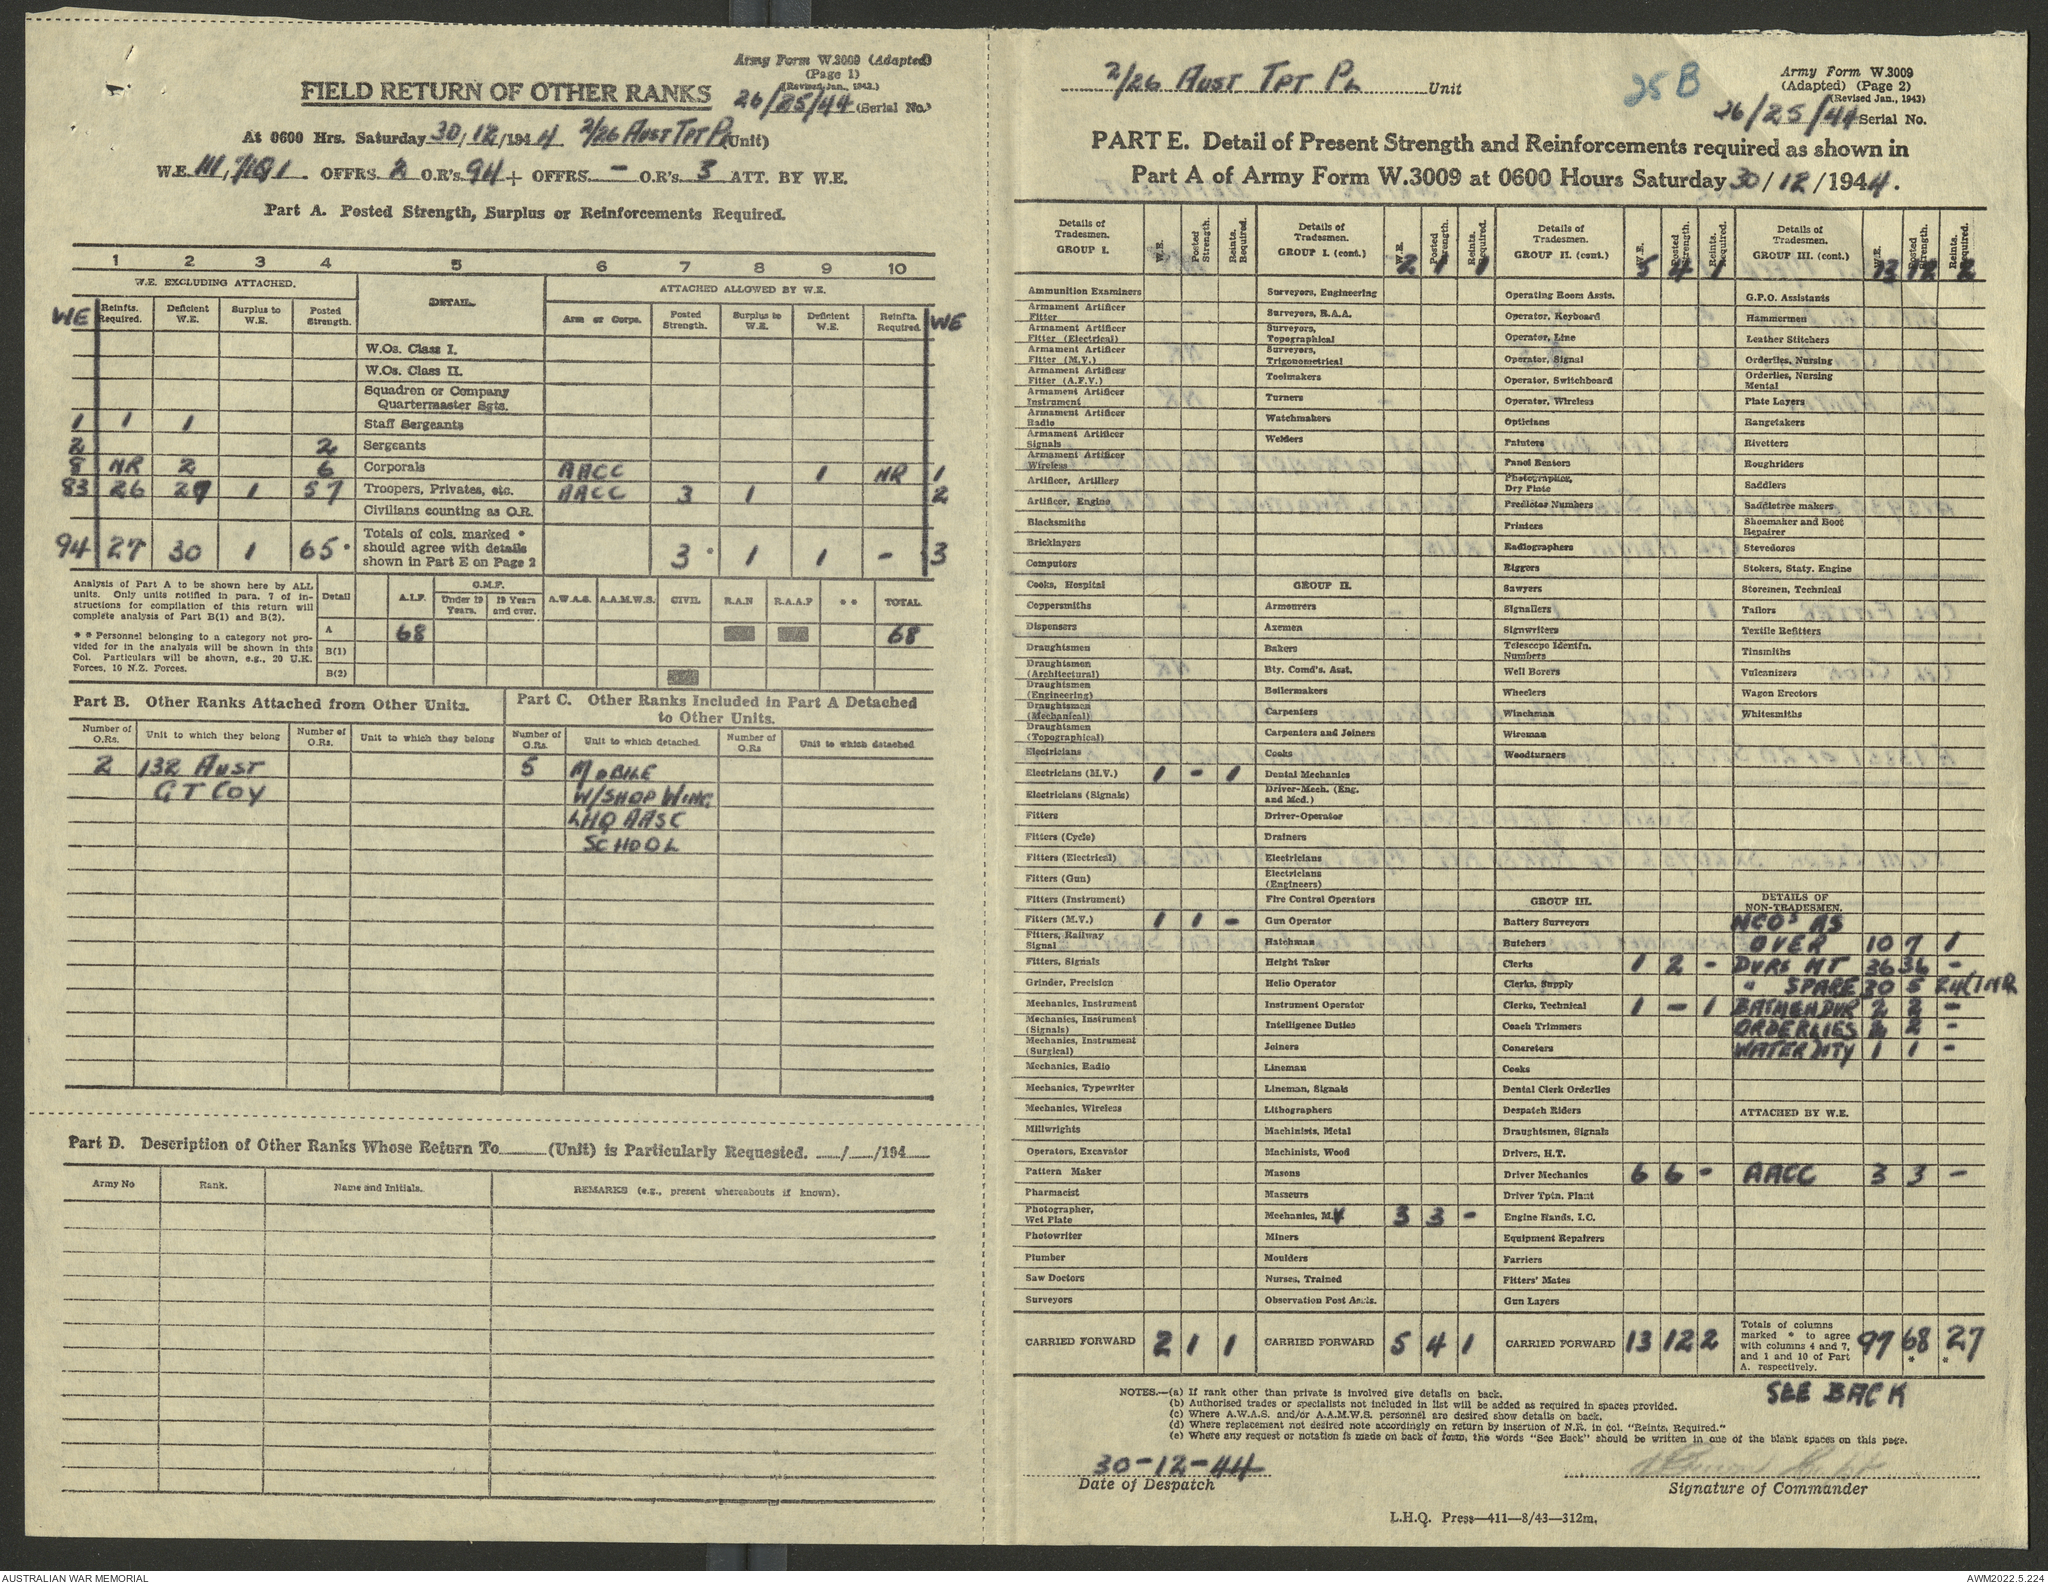 Army Form W.3009 (Adapted)
(Page 1)
(Revised Jan., 1943.)
FIELD RETURN OF OTHER RANKS
26/25/44 (Serial No.)
At 0600 Hrs. Saturday 30/12/1944 2/26 AUST TPT PL (Unit)
OFFRS. 2 O.R's. 94 + OFFRS. - O.R's. 3 ATT. BY W.E.
Part A. Posted Strength, Surplus or Reinforcements Required.
1 2 3 4 5 6 7 8 9 10
W.E. EXCLUDING ATTACHED. DETAIL. ATTACHED ALLOWED BY W.E.
WE Reinfts. Required. Deficient W.E. Surplus to W.E. Posted Strength. Arm or Corps. Posted Strength. Surplus to W.E. Deficient W.E. Reinfts. Required. WE
W.Os. Class I.
W.Os. Class II.
Squadron or Company Quartermaster Sgts.
1 1 1 Staff Sergeants
2 2 Sergeants
8 NR 2 6 Corporals AACC 1 NR 1
83 26 27 1 57 Troopers, Privates, etc. AACC 3 1 2
Civilians counting as O.R.
94 27 30 1 65 * Totals of cols. marked * should agree with details shown in Part E on Page 2 3 * 1 1 - 3
Analysis of Part A to be shown here by ALL
units. Only units notified in para. 7 of in-
structions for compilation of this return will
complete analysis of Part B(1) and B(2).
* * Personnel belonging to a category not pro-
vided for in the analysis will be shown in this
Col. Particulars will be shown, e.g., 20 U.K.
Forces, 10 N.Z. Forces.
Detail A.I.F. C.M.F. Under 19 Years. 19 Years and over. A.W.A.S. A.A.M.W.S. CIVIL R.A.N R.A.A.F * * TOTAL
A 68 68
B(1)
B(2)
Part B. Other Ranks Attached from Other Units.
Number of O.Rs. Unit to which they belong Number of O.Rs. Unit to which they belong
2 132 AUST
GT COY
Part C. Other Ranks Included in Part A Detached
to Other Units.
Number of O.Rs. Unit to which detached. Number of O.Rs Unit to which detached
5 MOBILE
W/SHOP WING
LHQ AASC
SCHOOL
Part D. Description of Other Ranks Whose Return To (Unit) is Particularly Requested. / /194
Army No Rank. Name and Initials. REMARKS (e.g., present whereabouts if known).
2/26 AUST TPT PL Unit
25B
Army Form W.3009
(Adapted) (Page 2)
(Revised Jan., 1943)
26/25/44 Serial No.
PART E. Detail of Present Strength and Reinforcements required as shown in
Part A of Army Form W.3009 at 0600 Hours Saturday 30/12/1944.
Details of Tradesmen. GROUP I. W.E. Posted Strength. Reints. Required.
Ammunition Examiners
Armament Artificer Fitter
Armament Artificer Fitter (Electrical)
Armament Artificer Fitter (M.V.)
Armament Artificer Fitter (A.F.V.)
Armament Artificer Instrument
Armament Artificer Radio
Armament Artificer Signals
Armament Artificer Wireless
Artificer, Artillery
Artificer, Engine
Blacksmiths
Bricklayers
Computers
Cooks, Hospital
Coppersmiths
Dispensers
Draughtsmen
Draughtsmen (Architectural)
Draughtsmen (Engineering)
Draughtsmen (Mechanical)
Draughtsmen (Topographical)
Electricians
Electricians (M.V.) 1 - 1
Electricians (Signals)
Fitters
Fitters (Cycle)
Fitters (Electrical)
Fitters (Gun)
Fitters (Instrument)
Fitters (M.V.) 1 1 -
Fitters, Railway Signal
Fitters, Signals
Grinder, Precision
Mechanics, Instrument
Mechanics, Instrument (Signals)
Mechanics, Instrument (Surgical)
Mechanics, Radio
Mechanics, Typewriter
Mechanics, Wireless
Millwrights
Operators, Excavator
Pattern Maker
Pharmacist
Photographer, Wet Plate
Photowriter
Plumber
Saw Doctors
Surveyors
CARRIED FORWARD 2 1 1
Details of Tradesmen. GROUP I. (cont.) W.E. Posted Strength. Reints. Required.
2 1 1
Surveyors, Engineering
Surveyors, R.A.A.
Surveyors, Topographical
Surveyors, Trigonometrical
Toolmakers
Turners
Watchmakers
Welders
GROUP II.
Armourers
Axemen
Bakers
Bty. Comd's. Asst.
Boilermakers
Carpenters
Carpenters and Joiners
Cooks
Dental Mechanics
Driver-Mech. (Eng. and Med.)
Driver-Operator
Drainers
Electricians
Electricians (Engineers)
Fire Control Operators
Gun Operator
Hatchman
Height Taker
Helio Operator
Instrument Operator
Intelligence Duties
Joiners
Lineman
Lineman, Signals
Lithographers
Machinists, Metal
Machinists, Wood
Masons
Masseurs
Mechanics, M.V 3 3 -
Miners
Moulders
Nurses, Trained
Observation Post Assts.
CARRIED FORWARD 5 4 1
Details of Tradesmen. GROUP II. (cont.) W.E. Posted Strength. Reints. Required.
5 4 1
Operating Room Assts.
Operator, Keyboard
Operator, Line
Operator, Signal
Operator, Switchboard
Operator, Wireless
Opticians
Painters
Panel Beaters
Photographer, Dry Plate
Predictor Numbers
Printers
Radiographers
Riggers
Sawyers
Signallers
Signwriters
Telescope Identfn. Numbers
Well Borers
Wheelers
Winchman
Wireman
Woodturners
GROUP III.
Battery Surveyors
Butchers
Clerks 1 2 -
Clerks, Supply
Clerks, Technical 1 - 1
Coach Trimmers
Concretors
Cooks
Dental Clerk Orderlies
Despatch Riders
Draughtsmen, Signals
Drivers, H.T.
Driver Mechanics 6 6 -
Driver Tptn. Plant
Engine Hands, I.C.
Equipment Repairers
Farriers
Fitters' Mates
Gun Layers
CARRIED FORWARD 13 12 2
Details of Tradesmen. GROUP III. (cont.) W.E. Posted Strength. Reints. Required.
13 12 2
G.P.O. Assistants
Hammermen
Leather Stitchers
Orderlies, Nursing
Orderlies, Nursing Mental
Plate Layers
Rangetakers
Rivetters
Roughriders
Saddlers
Saddletree makers
Shoemaker and Boot Repairer
Stevedores
Stokers, Staty. Engine
Storemen, Technical
Tailors
Textile Refitters
Tinsmiths
Vulcanizers
Wagon Erectors
Whitesmiths
DETAILS OF NON-TRADESMEN.
NCO's AS
OVER 10 7 1
DVRS MT 36 36 -
" SPARE 30 5 24/1NR
BATMEN DVR 2 2 -
ORDERLIES 2 2 -
WATER DTY 1 1 -
ATTACHED BY W.E.
AACC 3 3 -
Totals of columns marked * to agree with columns 4 and 7, and 1 and 10 of Part A. respectively. 97 68 * 27 *
SEE BACK
NOTES.—(a) If rank other than private is involved give details on back.
(b) Authorised trades or specialists not included in list will be added as required in spaces provided.
(c) Where A.W.A.S. and/or A.A.M.W.S. personnel are desired show details on back.
(d) Where replacement not desired note accordingly on return by insertion of N.R. in col. "Reints. Required."
(e) Where any request or notation is made on back of form, the words "See Back" should be written in one of the blank spaces on this page.
30-12-44
Date of Despatch
Signature of Commander
L.H.Q. Press—411—8/43—312m.
AUSTRALIAN WAR MEMORIAL
AWM2022.5.224